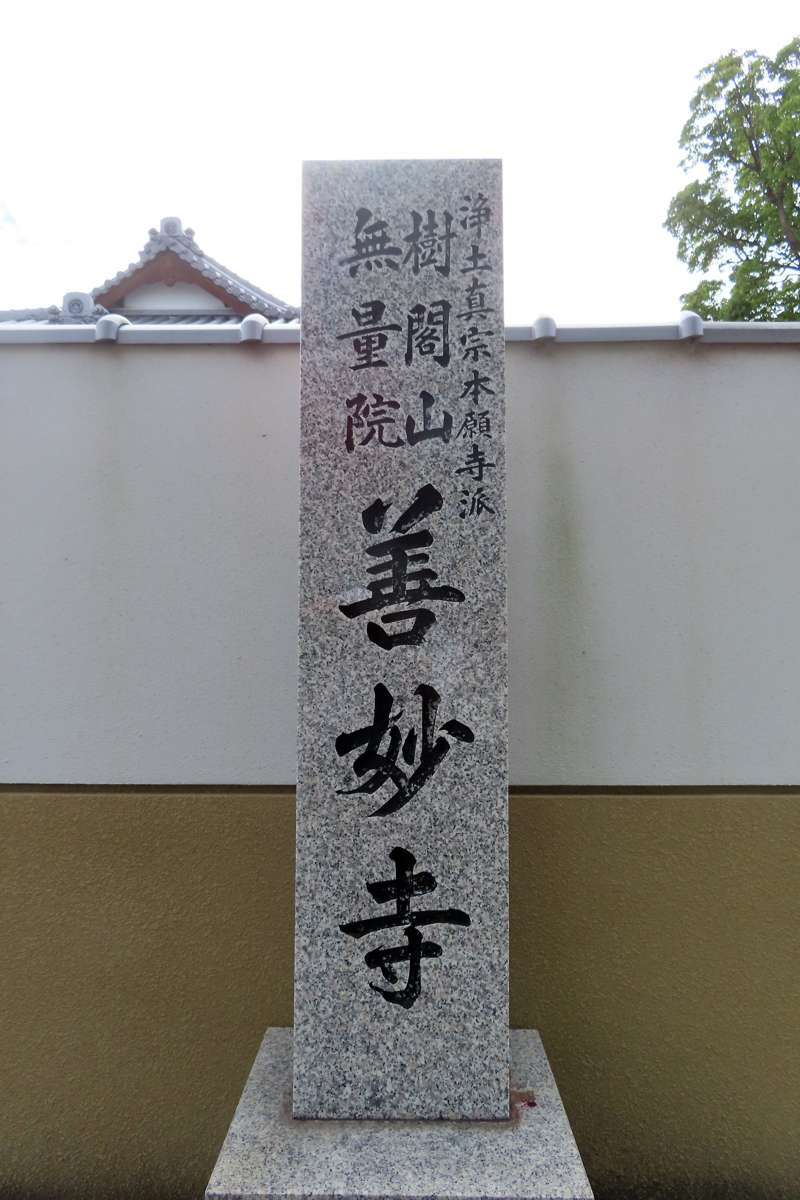 浄土真宗本願寺派
樹閣山
無量院
善妙寺